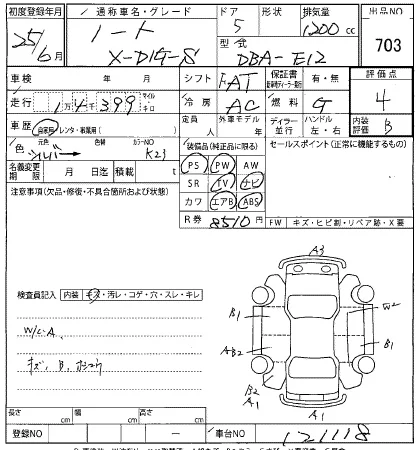 初度登録年月 通称車名・グレード ドア 形状 排気量 出品NO
25年 6月 ノート 5 1200cc 703
X-DIG-S 型式 DBA-E12
車検 年 月 シフト FAT 保証書 有・無 評価点
走行 1万4399 マイル キロ 冷房 AC 燃料 G 4
車歴 自家用・レンタ・事業用( ) 定員 人 外車モデル 年 ディーラー 並行 ハンドル 左・右 内装評価 B
色 元色 シルバー 色替 カラーNO K23 装備品(純正品に限る) セールスポイント(正常に機能するもの)
PS PW AW
名義変更期限 月 日迄 積載 t SR TV ナビ
注意事項(欠品・修復・不具合箇所および状態) カワ エアB ABS
R券 8510円 FW キズ・ヒビ割・リペア跡・X要
A3
検査員記入 内装 キズ・汚レ・コゲ・穴・スレ・キレ
B1 W2
W/C・A
AB2 B1
キズ、B、
B2
A1
A1
長さ cm 幅 cm 高さ cm
登録NO － 車台NO 121118